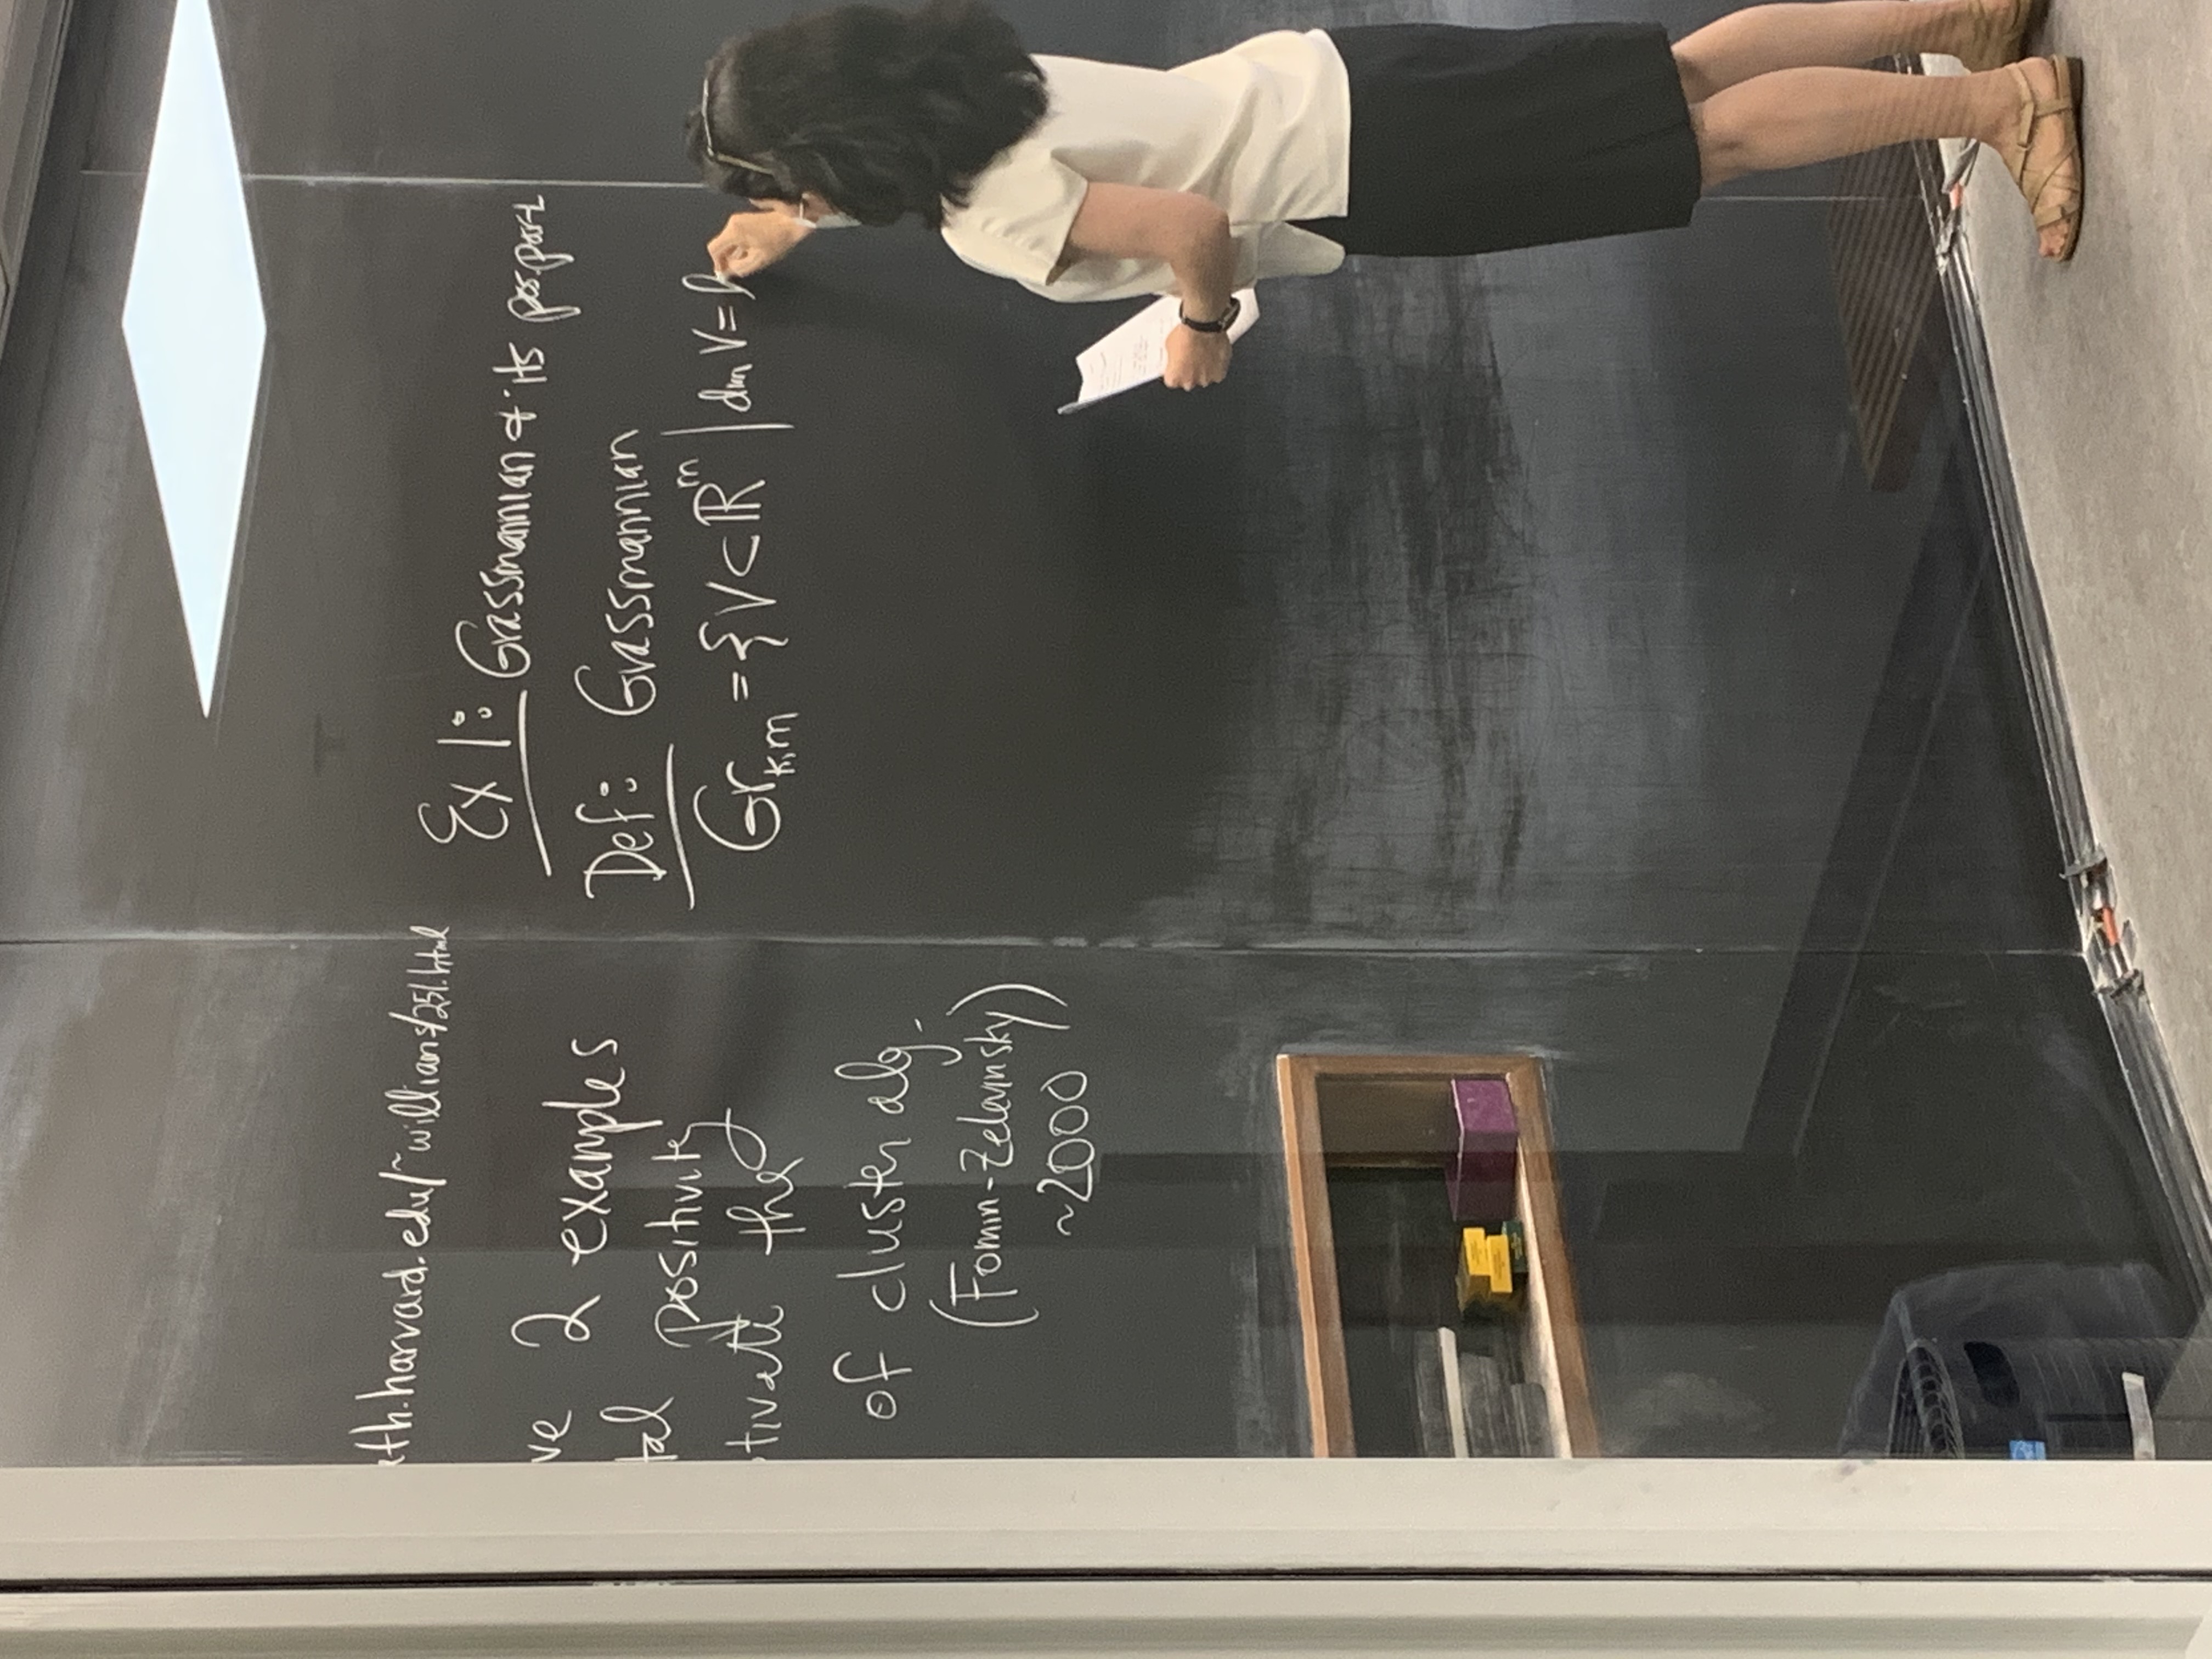 th.harvard.edu/~williams/251.html
ve 2 examples
tal positivity
tivate the
of cluster alg.
(Fomin-Zelevinsky)
~2000
Ex 1: Grassmannian & its pos. part
Def: Grassmannian
Gr_{k,m} = {V ⊂ ℝ^m | dim V = k